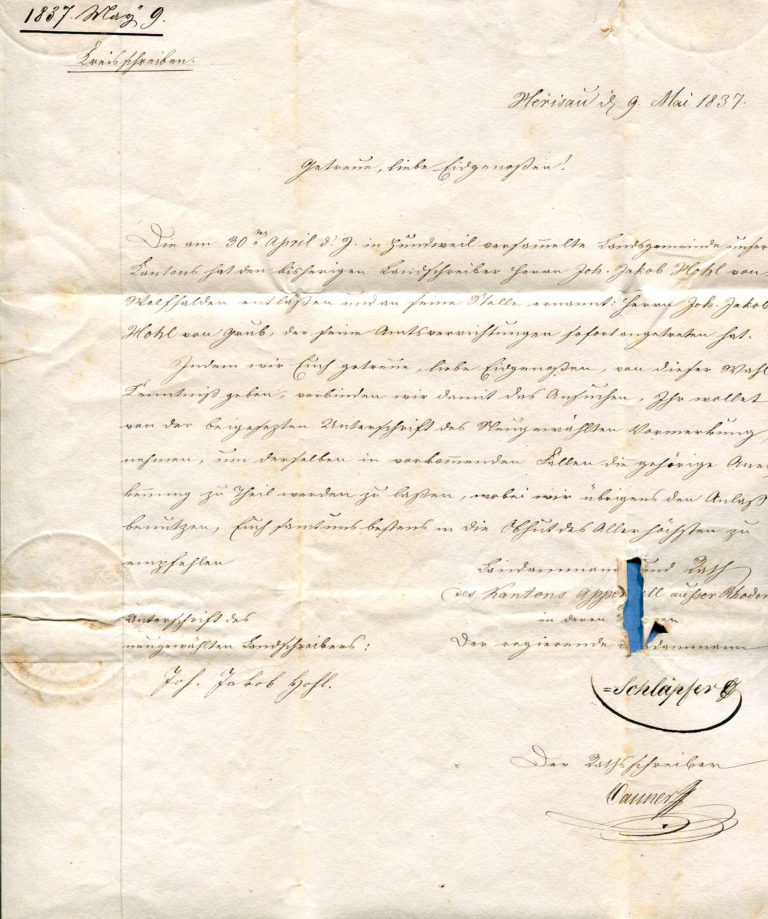 1837. May 9.
Kreisschreiben.
Herisau d. 9. Mai 1837.
Getreue, liebe Eidgenoßen!
Die am 30ten April d. J. in Hundweil versammelte Landsgemeinde unsers
Kantons hat den bisherigen Landschreiber Herrn Joh. Jakob Hohl von
Wolfhalden entlaßen und an seine Stelle ernannt: Herrn Joh. Jakob
Hohl von Grub, der seine Amtsverrichtungen sofort angetreten hat.
Indem wir Euch getreue, liebe Eidgenoßen, von dieser Wahl
Kenntniß geben, verbinden wir damit das Ansuchen, Ihr wollet
von der beigesezten Unterschrift des Neugewählten Vormerkung
nehmen, um derselben in vorkommenden Fällen die gehörige Aner-
kennung zu Theil werden zu laßen, wobei wir übrigens den Anlaß
benutzen, Euch samt uns bestens in die Obhut des Allerhöchsten zu
empfehlen
Landammann und Rath
des Kantons Appenzell außer Rhoden
in deren
Der regierende Landammann
Schläpfer
Unterschrift des
neugewählten Landschreibers:
Joh. Jakob Hohl.
Der Rathsschreiber